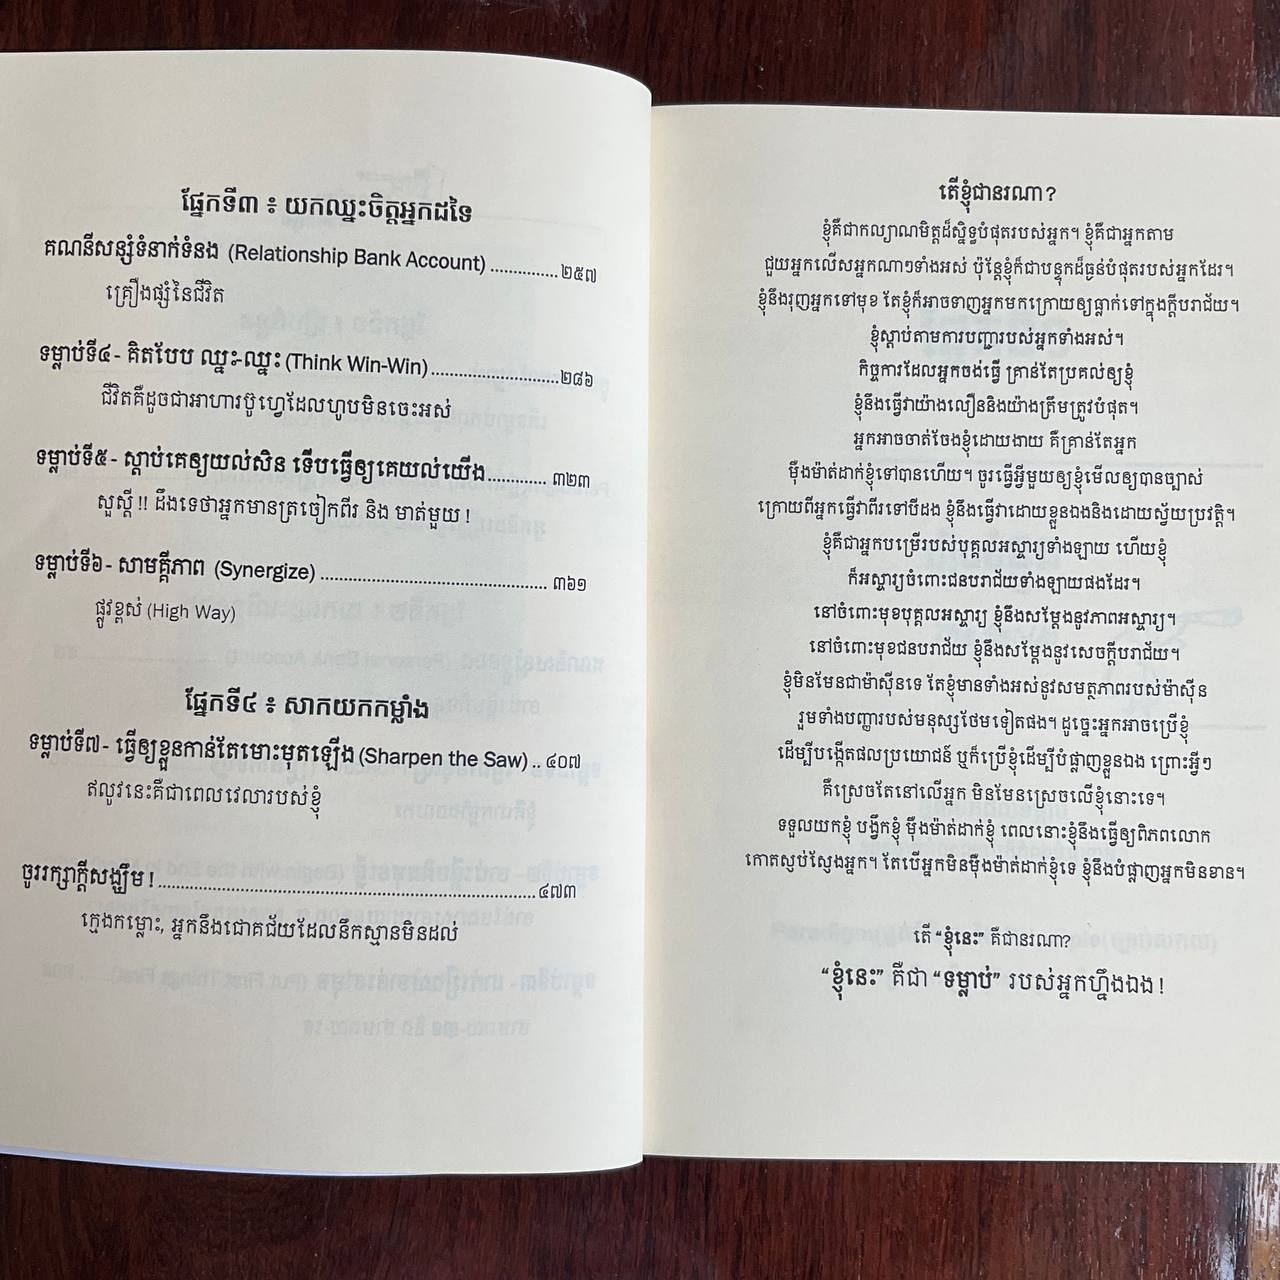 ផ្នែកទី៣ ៖ យកឈ្នះចិត្តអ្នកដទៃ
គណនីសន្សំទំនាក់ទំនង (Relationship Bank Account) ...............២៥៧
គ្រឿងផ្សំនៃជីវិត
ទម្លាប់ទី៤- គិតបែប ឈ្នះ-ឈ្នះ (Think Win-Win)............................២៨៦
ជីវិតគឺដូចជាអាហារប៊ូហ្វេដែលហូបមិនចេះអស់
ទម្លាប់ទី៥- ស្ដាប់គេឲ្យយល់សិន ទើបធ្វើឲ្យគេយល់យើង............. ៣២៣
សួស្ដី !! ដឹងទេថាអ្នកមានត្រចៀកពីរ និង មាត់មួយ !
ទម្លាប់ទី៦- សាមគ្គីភាព (Synergize) .................................................. ៣៦១
ផ្លូវខ្ពស់ (High Way)
ផ្នែកទី៤ ៖ សាកយកកម្លាំង
ទម្លាប់ទី៧- ធ្វើឲ្យខ្លួនកាន់តែមោះមុតឡើង (Sharpen the Saw) .. ៤០៧
ឥលូវនេះគឺជាពេលវេលារបស់ខ្ញុំ
ចូររក្សាក្ដីសង្ឃឹម !....................................................................................៤៧៣
ក្មេងកម្លោះ, អ្នកនឹងជោគជ័យដែលនឹកស្មានមិនដល់
តើខ្ញុំជានរណា?
ខ្ញុំគឺជាកល្យាណមិត្តដ៏ស្និទ្ធបំផុតរបស់អ្នក។ ខ្ញុំគឺជាអ្នកតាម
ជួយអ្នកលើសអ្នកណាៗទាំងអស់ ប៉ុន្តែខ្ញុំក៏ជាបន្ទុកដ៏ធ្ងន់បំផុតរបស់អ្នកដែរ។
ខ្ញុំនឹងរុញអ្នកទៅមុខ តែខ្ញុំក៏អាចទាញអ្នកមកក្រោយឲ្យធ្លាក់ទៅក្នុងក្ដីបរាជ័យ។
ខ្ញុំស្ដាប់តាមការបញ្ជារបស់អ្នកទាំងអស់។
កិច្ចការដែលអ្នកចង់ធ្វើ គ្រាន់តែប្រគល់ឲ្យខ្ញុំ
ខ្ញុំនឹងធ្វើវាយ៉ាងលឿននិងយ៉ាងត្រឹមត្រូវបំផុត។
អ្នកអាចចាត់ចែងខ្ញុំដោយងាយ គឺគ្រាន់តែអ្នក
ម៉ឺងម៉ាត់ដាក់ខ្ញុំទៅបានហើយ។ ចូរ ធ្វើអ្វីមួយឲ្យខ្ញុំមើលឲ្យបានច្បាស់
ក្រោយពីអ្នកធ្វើវាពីរទៅបីដង ខ្ញុំនឹងធ្វើវាដោយខ្លួនឯងនិងដោយស្វ័យប្រវត្តិ។
ខ្ញុំគឺជាអ្នកបម្រើរបស់បុគ្គលអស្ចារ្យទាំងឡាយ ហើយខ្ញុំ
ក៏អស្ចារ្យចំពោះជនបរាជ័យទាំងឡាយផងដែរ។
នៅចំពោះមុខបុគ្គលអស្ចារ្យ ខ្ញុំនឹងសម្ដែងនូវភាពអស្ចារ្យ។
នៅចំពោះមុខជនបរាជ័យ ខ្ញុំនឹងសម្ដែងនូវសេចក្ដីបរាជ័យ។
ខ្ញុំមិនមែនជាម៉ាស៊ីនទេ តែខ្ញុំមានទាំងអស់នូវសមត្ថភាពរបស់ម៉ាស៊ីន
រួមទាំងបញ្ញារបស់មនុស្សថែមទៀតផង។ ដូច្នេះអ្នកអាចប្រើខ្ញុំ
ដើម្បីបង្កើតផលប្រយោជន៍ ឬក៏ប្រើខ្ញុំដើម្បីបំផ្លាញខ្លួនឯង ព្រោះអ្វីៗ
គឺស្រេចតែនៅលើអ្នក មិនមែនស្រេចលើខ្ញុំនោះទេ។
ទទួលយកខ្ញុំ បង្វឹកខ្ញុំ ម៉ឺងម៉ាត់ដាក់ខ្ញុំ ពេលនោះខ្ញុំនឹងធ្វើឲ្យពិភពលោក
កោតស្ងប់ស្ងែងអ្នក។ តែបើអ្នកមិនម៉ឺងម៉ាត់ដាក់ខ្ញុំទេ ខ្ញុំនឹងបំផ្លាញអ្នកមិនខាន។
តើ “ខ្ញុំនេះ” គឺជានរណា?
“ខ្ញុំនេះ” គឺជា “ទម្លាប់” របស់អ្នកហ្នឹងឯង !